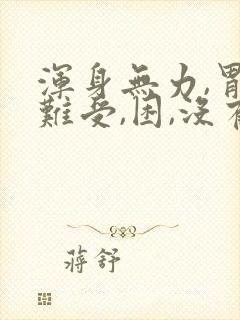 渾身無力,胃
難受,困,沒有
蔣舒